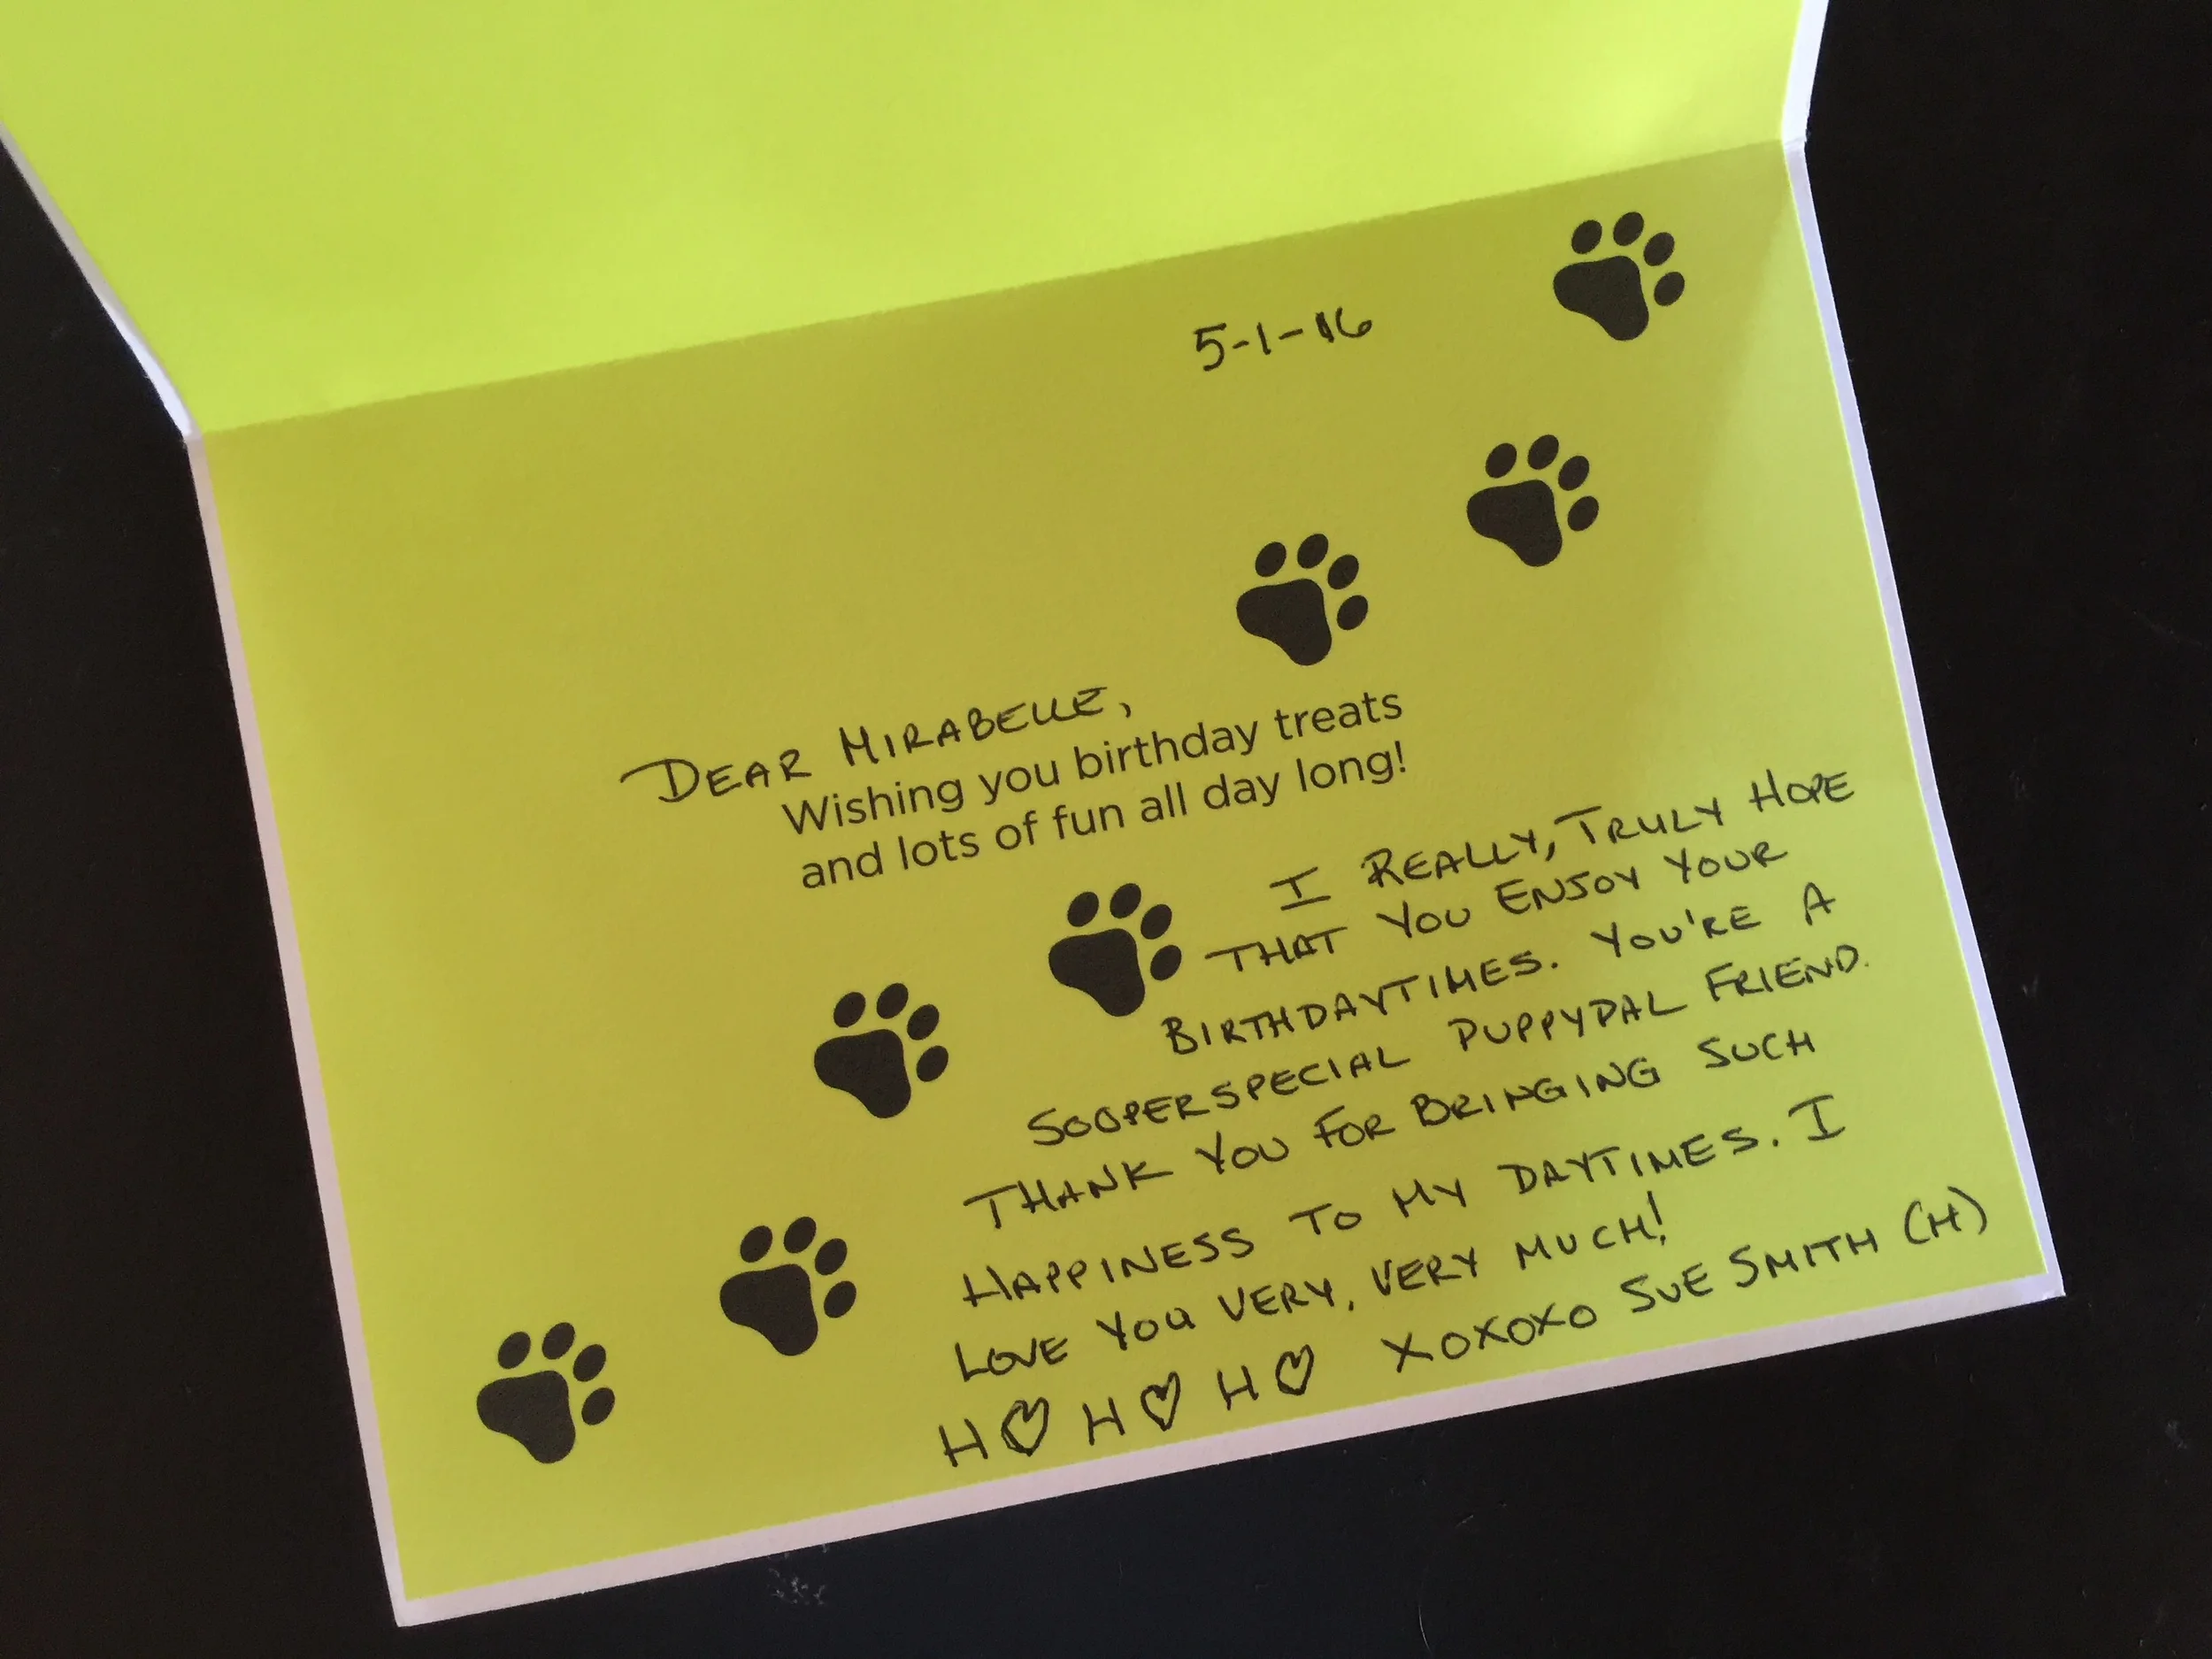 5-1-16
DEAR MIRABELLE,
Wishing you birthday treats
and lots of fun all day long!
I REALLY, TRULY HOPE
THAT YOU ENJOY YOUR
BIRTHDAYTIMES. YOU'RE A
SOOPERSPECIAL PUPPYPAL FRIEND.
THANK YOU FOR BRINGING SUCH
HAPPINESS TO MY DAYTIMES. I
LOVE YOU VERY, VERY MUCH!
H♡H♡H♡ XOXOXO SUE SMITH (H)